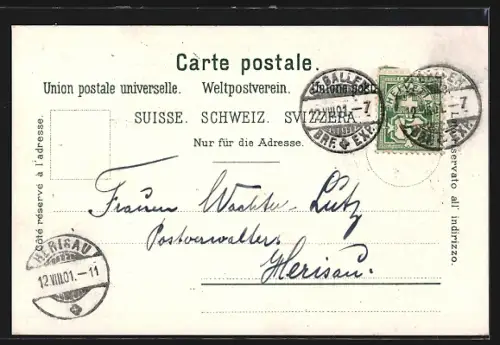 Carte postale.
Union postale universelle. Weltpostverein. Unione post
SUISSE. SCHWEIZ. SVIZZERA.
Nur für die Adresse.
Côté réservé à l'adresse.
ST. GALLEN
VIII.01. –7
BRF. EXP.
HELVETIA
GALLEN
VIII.01. –7
BRF. EXP.
Frauen Wachter-Lutz
Postverwalters
Herisau.
HERISAU
12.VIII.01. –11
riservato all' indirizzo.